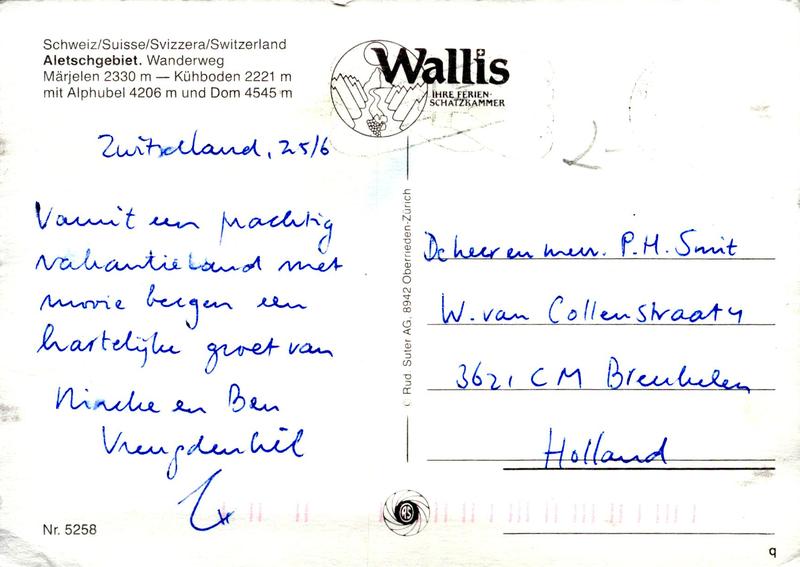 Schweiz/Suisse/Svizzera/Switzerland
Aletschgebiet. Wanderweg
Märjelen 2330 m — Kühboden 2221 m
mit Alphubel 4206 m und Dom 4545 m
Wallis
IHRE FERIEN-
SCHATZKAMMER
2-
Zwitserland, 25/6
Vanuit een prachtig
vakantieland met
mooie bergen een
hartelijke groet van
Nineke en Ben
Vreugdenhil
© Rud. Suter AG, 8942 Oberrieden-Zürich
De heer en mevr. P.H. Smit
W. van Collenstraat 4
3621 CM Breukelen
Holland
RS
Nr. 5258
q